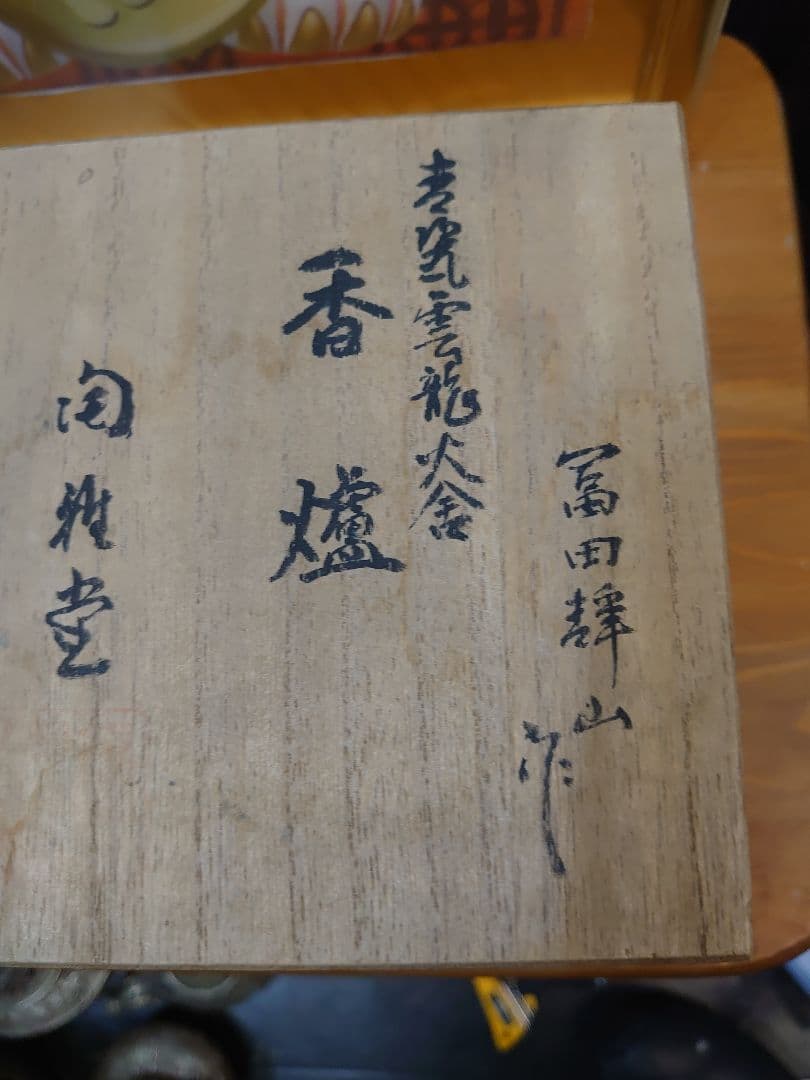 冨田靜山作
青瓷雲龍火舎
香爐
陶雅堂